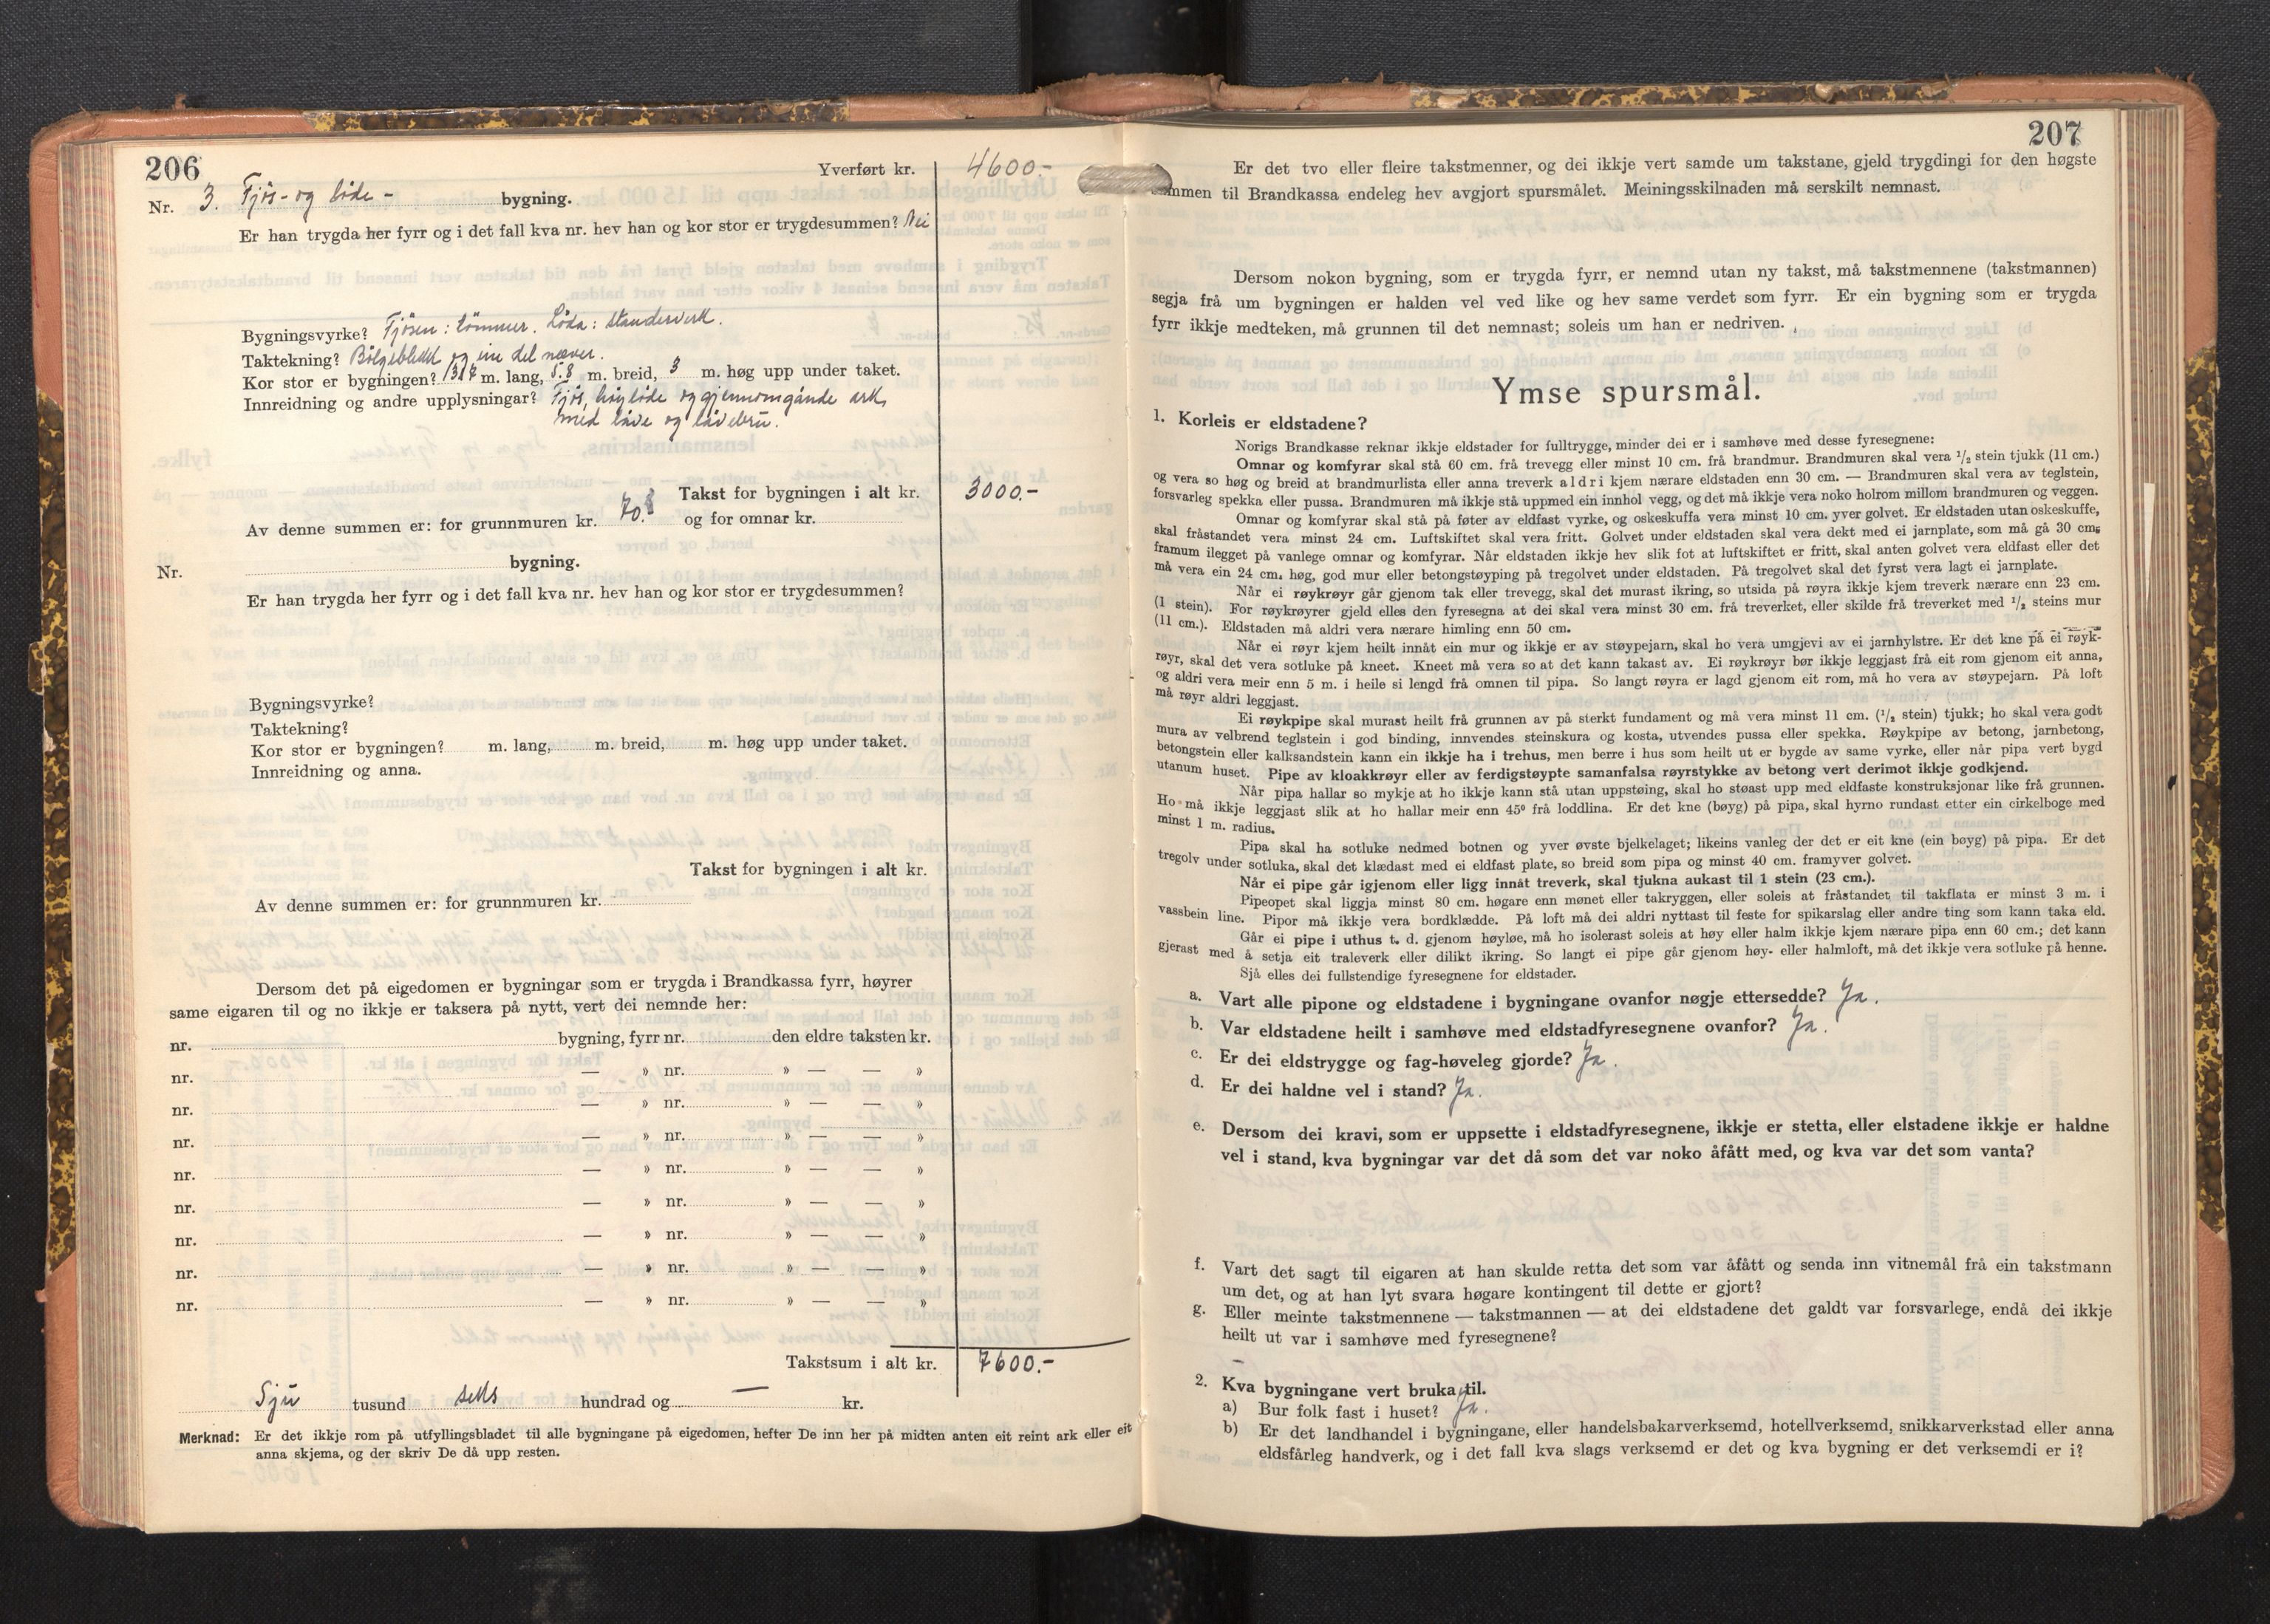 206
Yverført kr. 4600.-
Nr. 3. Fjøs- og løde- bygning.
Er han trygda her fyrr og i det fall kva nr. hev han og kor stor er trygdesummen? Nei
Bygningsvyrke? Fjøsen: tømmer. Løda: standerverk.
Taktekning? Bølgeblekk og ein del næver.
Kor stor er bygningen? m. lang, 5.8 m. breid, 3 m. høg upp under taket.
Innreidning og andre upplysningar? Fjøs, høyløde og gjennomgånde ark,
med låve og låvebru.
Takst for bygningen i alt kr. 3000.-
Av denne summen er: for grunnmuren kr. 70.- og for omnar kr.
Nr. bygning.
Er han trygda her fyrr og i det fall kva nr. hev han og kor stor er trygdesummen?
Bygningsvyrke?
Taktekning?
Kor stor er bygningen? m. lang, m. breid, m. høg upp under taket.
Innreidning og anna.
Takst for bygningen i alt kr.
Av denne summen er: for grunnmuren kr.
Dersom det på eigedomen er bygningar som er trygda i Brandkassa fyrr, høyrer
same eigaren til og no ikkje er taksera på nytt, vert dei nemnde her:
nr. bygning, fyrr nr. den eldre taksten kr.
nr. — » nr. » — — »
nr. — » nr. » — — »
nr. — » nr. » — — »
nr. — » nr. » — — »
nr. — » nr. » — — »
nr. — » nr. » — — »
nr. — » nr. » — — »
nr. — » nr. » — — »
Takstsum i alt kr. 7600.-
Sju tusund seks hundrad og — kr.
Merknad: Er det ikkje rom på utfyllingsbladet til alle bygningane på eigedomen, hefter De inn her på midten anten eit reint ark eller eit
anna skjema, og der skriv De då upp resten.
207
Er det tvo eller fleire takstmenner, og dei ikkje vert samde um takstane, gjeld trygdingi for den høgste
summen til Brandkassa endeleg hev avgjort spursmålet. Meiningsskilnaden må serskilt nemnast.
Dersom nokon bygning, som er trygda fyrr, er nemnd utan ny takst, må takstmennene (takstmannen)
segja frå um bygningen er halden vel ved like og hev same verdet som fyrr. Er ein bygning som er trygda
fyrr ikkje medteken, må grunnen til det nemnast; soleis um han er nedriven.
Ymse spursmål.
1. Korleis er eldstadene?
Norigs Brandkasse reknar ikkje eldstader for fulltrygge, minder dei er i samhøve med desse fyresegnene:
Omnar og komfyrar skal stå 60 cm. frå trevegg eller minst 10 cm. frå brandmur. Brandmuren skal vera 1/2 stein tjukk (11 cm.)
og vera so høg og breid at brandmurlista eller anna treverk aldri kjem nærare eldstaden enn 30 cm. — Brandmuren skal vera av teglstein,
forsvarleg spekka eller pussa. Brandmuren må ikkje stå uppmed ein innhol vegg, og det må ikkje vera noko holrom millom brandmuren og veggen.
Omnar og komfyrar skal stå på føter av eldfast vyrke, og oskeskuffa vera minst 10 cm. yver golvet. Er eldstaden utan oskeskuffe,
skal fråstandet vera minst 24 cm. Luftskiftet skal vera fritt. Golvet under eldstaden skal vera dekt med ei jarnplate, som må gå 30 cm.
framum ilegget på vanlege omnar og komfyrar. Når eldstaden ikkje hev slik fot at luftskiftet er fritt, skal anten golvet vera eldfast eller det
må vera ein 24 cm. høg, god mur eller betongstøyping på tregolvet under eldstaden. På tregolvet skal det fyrst vera lagt ei jarnplate.
Når ei røykrøyr går gjenom tak eller trevegg, skal det murast ikring, so utsida på røyra ikkje kjem treverk nærare enn 23 cm.
(1 stein). For røykrøyrer gjeld elles den fyresegna at dei skal vera minst 30 cm. frå treverket, eller skilde frå treverket med 1/2 steins mur
(11 cm.). Eldstaden må aldri vera nærare himling enn 50 cm.
Når ei røyr kjem heilt innåt ein mur og ikkje er av støypejarn, skal ho vera umgjevi av ei jarnhylstre. Er det kne på ei røyk-
røyr, skal det vera sotluke på kneet. Kneet må vera so at det kann takast av. Ei røykrøyr bør ikkje leggjast frå eit rom gjenom eit anna,
og aldri vera meir enn 5 m. i heile si lengd frå omnen til pipa. So langt røyra er lagd gjenom eit rom, må ho vera av støypejarn. På loft
må røyr aldri leggjast.
Ei røykpipe skal murast heilt frå grunnen av på sterkt fundament og må vera minst 11 cm. (1/2 stein) tjukk; ho skal vera godt
mura av velbrend teglstein i god binding, innvendes steinskura og kosta, utvendes pussa eller spekka. Røykpipe av betong, jarnbetong,
betongstein eller kalksandstein kann ein ikkje ha i trehus, men berre i hus som heilt ut er bygde av same vyrke, eller når pipa vert bygd
utanum huset. Pipe av kloakkrøyr eller av ferdigstøypte samanfalsa røyrstykke av betong vert derimot ikkje godkjend.
Når pipa hallar so mykje at ho ikkje kann stå utan uppstøing, skal ho støast upp med eldfaste konstruksjonar like frå grunnen.
Ho må ikkje leggjast slik at ho hallar meir enn 45° frå loddlina. Er det kne (bøyg) på pipa, skal hyrno rundast etter ein cirkelboge med
minst 1 m. radius.
Pipa skal ha sotluke nedmed botnen og yver øvste bjelkelaget; likeins vanleg der det er eit kne (ein bøyg) på pipa. Er det
tregolv under sotluka, skal det klædast med ei eldfast plate, so breid som pipa og minst 40 cm. framyver golvet.
Når ei pipe går igjenom eller ligg innåt treverk, skal tjukna aukast til 1 stein (23 cm.).
Pipeopet skal liggja minst 80 cm. høgare enn mønet eller takryggen, eller soleis at fråstandet til takflata er minst 3 m. i
vassbein line. Pipor må ikkje vera bordklædde. På loft må dei aldri nyttast til feste for spikarslag eller andre ting som kann taka eld.
Går ei pipe i uthus t. d. gjenom høyløe, må ho isolerast soleis at høy eller halm ikkje kjem nærare pipa enn 60 cm.; det kann
gjerast med å setja eit traleverk eller dilikt ikring. So langt ei pipe går gjenom høy- eller halmloft, må det ikkje vera sotluke på henne.
Sjå elles dei fullstendige fyresegnene for eldstader.
a. Vart alle pipone og eldstadene i bygningane ovanfor nøgje ettersedde? Ja.
b. Var eldstadene heilt i samhøve med eldstadfyresegnene ovanfor? Ja.
c. Er dei eldstrygge og fag-høveleg gjorde? Ja.
d. Er dei haldne vel i stand? Ja.
e. Dersom dei kravi, som er uppsette i eldstadfyresegnene, ikkje er stetta, eller elstadene ikkje er haldne
vel i stand, kva bygningar var det då som det var noko åfått med, og kva var det som vanta?
f. Vart det sagt til eigaren at han skulde retta det som var åfått og senda inn vitnemål frå ein takstmann
um det, og at han lyt svara høgare kontingent til dette er gjort?
g. Eller meinte takstmennene — takstmannen — at dei eldstadene det galdt var forsvarlege, endå dei ikkje
heilt ut var i samhøve med fyresegnene?
–
2. Kva bygningane vert bruka til.
a) Bur folk fast i huset? Ja.
b) Er det landhandel i bygningane, eller handelsbakarverksemd, hotellverksemd, snikkarverkstad eller anna
eldsfårleg handverk, og i det fall kva slags verksemd er det og kva bygning er det verksemdi er i?